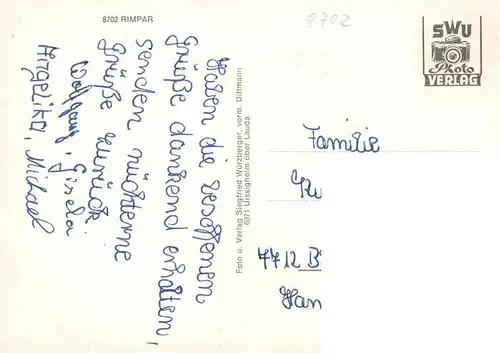 8702 RIMPAR
8702
SWU
Photo
VERLAG
Haben die besoffenen
Grüße dankend erhalten,
senden nüchterne
Grüße zurück
Wolfgang, Gisela
Angelika, Michael
Foto u. Verlag Siegfried Würzberger, vorm. Dittmann
6971 Uissigheim über Lauda
Familie
7712 B
Han